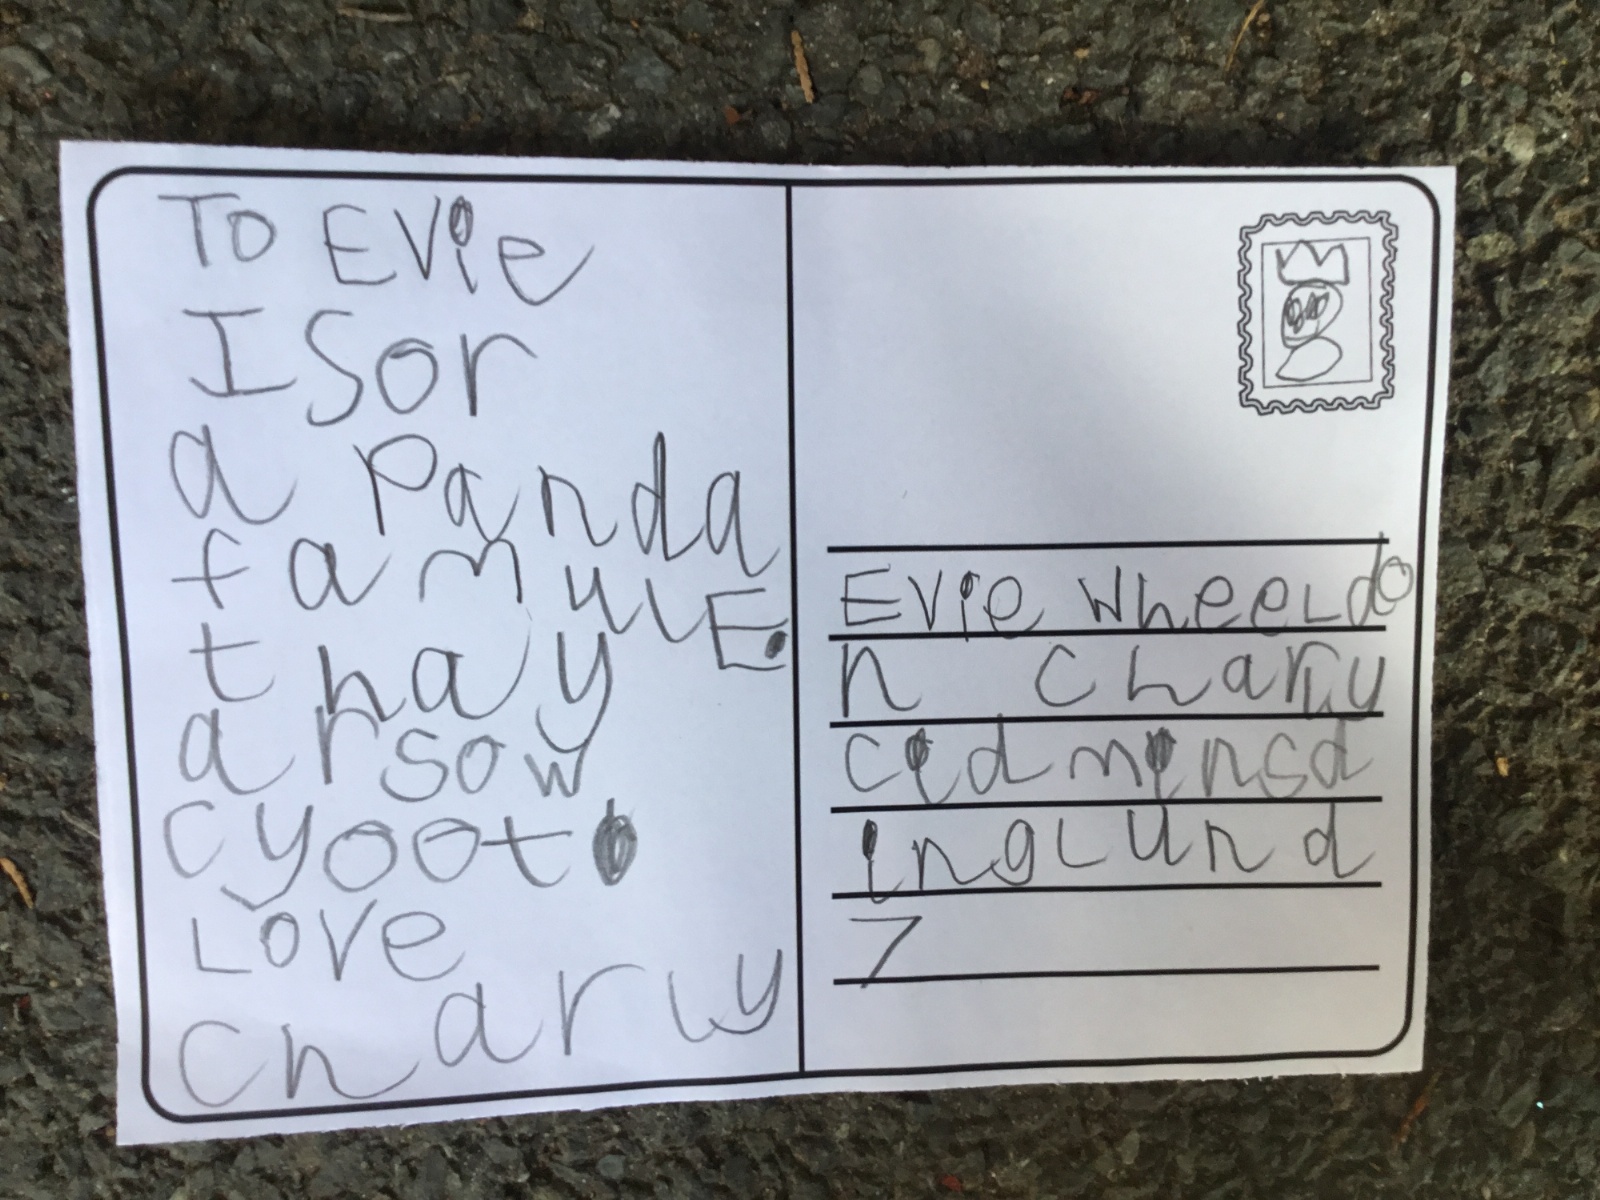 To Evie
I sor
a Panda
famulE.
thay
ar sow
cyoot
Love
charly
Evie wheeLdo
n charly
cidminsd
ingLund
7